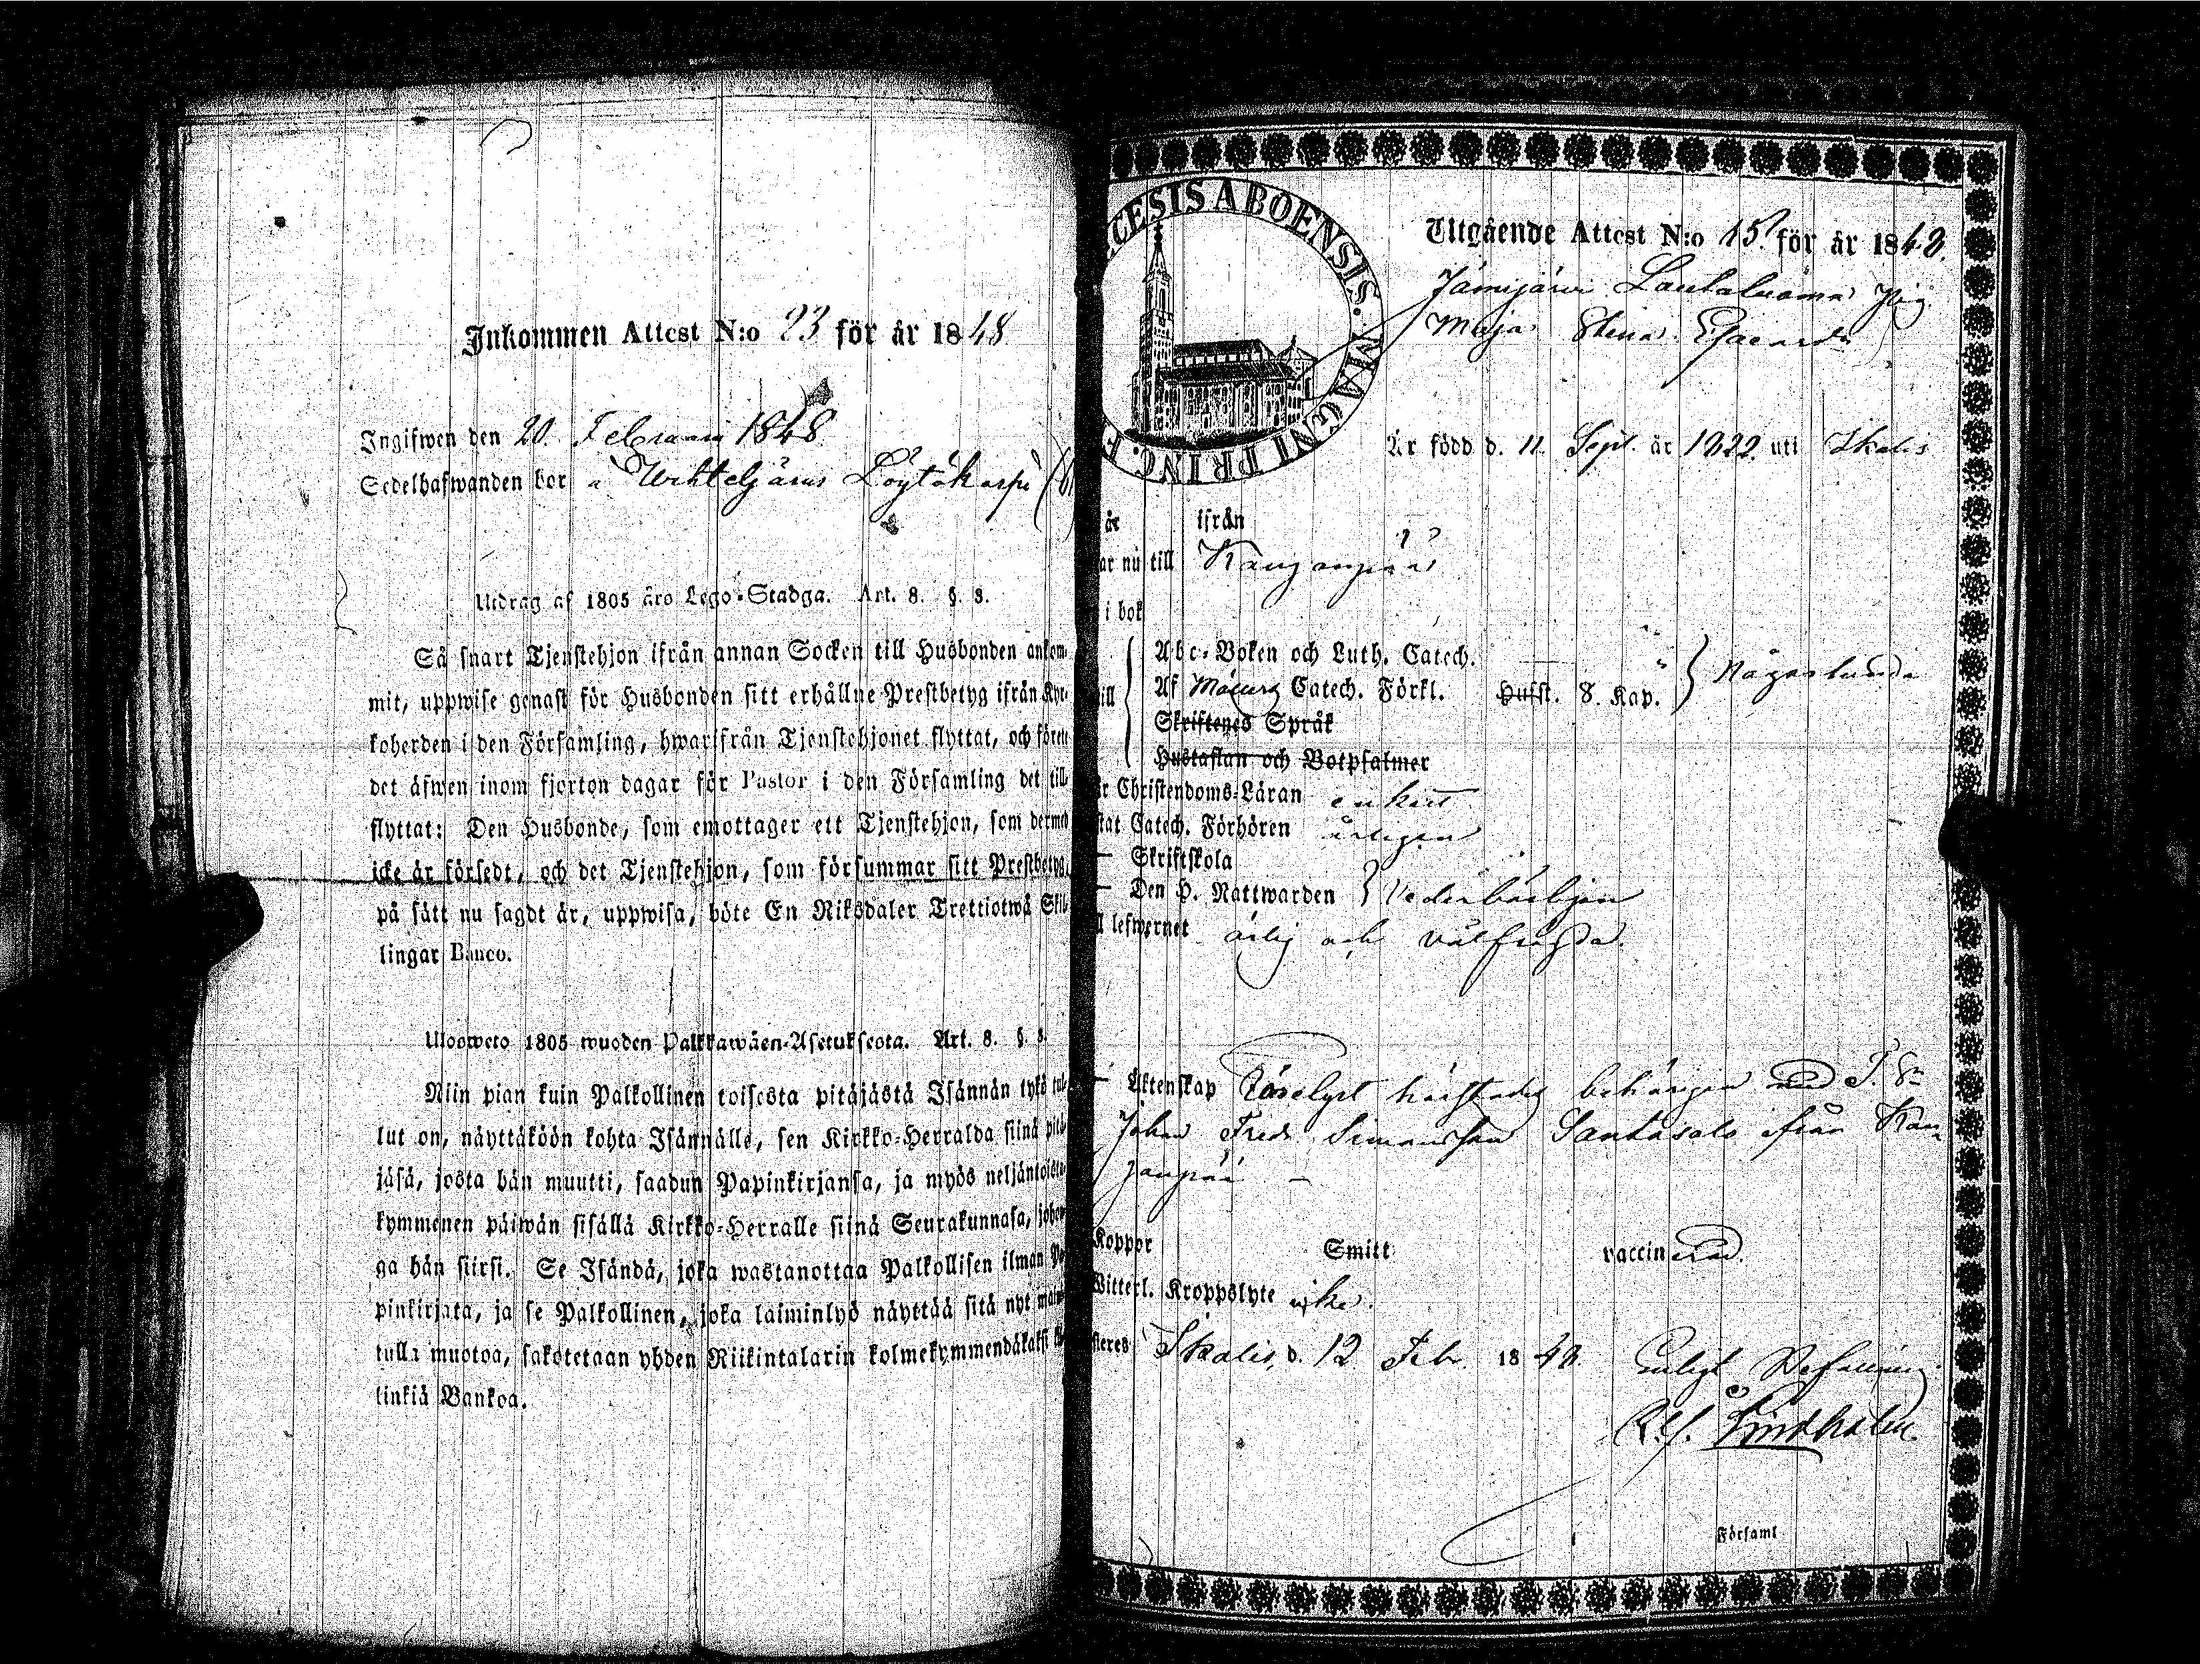 Inkommen Attest N:o 23 för år 1848
Ingifwen den 20 Februarii 1848
Sedelhafwanden bor å Wihteljärvi Löytökorpi
Utdrag af 1805 års Lego-Stadga. Art. 8. §. 3.
Så snart Tjenstehjon ifrån annan Socken till Husbonden ankom-
mit, uppwise genast för Husbonden sitt erhållne Prestbetyg ifrån Kyr-
koherden i den Församling, hwarifrån Tjenstehjonet flyttat, och förete
det äfwen inom fjorton dagar för Pastor i den Församling det till-
flyttat: Den Husbonde, som emottager ett Tjenstehjon, som dermed
icke är försedt, och det Tjenstehjon, som försummar sitt Prestbetyg,
på sätt nu sagdt är, uppwisa, böte En Riksdaler Trettiotwå Skil-
lingar Banco.
Ulosweto 1805 wuoden Palkkawäen-Asetuksesta. Art. 8. §. 3.
Niin pian kuin Palkollinen toisesta pitäjästä Isännän tykö tul-
lut on, näyttäköön kohta Isännälle, sen Kirkko-Herralda siinä pitä-
jäsä, josta hän muutti, saadun Papinkirjansa, ja myös neljäntoista-
kymmenen päiwän sisällä Kirkko-Herralle siinä Seurakunnasa, johon-
ga hän siirsi. Se Isändä, joka wastanottaa Palkollisen ilman Pa-
pinkirjata, ja se Palkollinen, joka laiminlyö näyttää sitä nyt mainit-
tulla muotoa, sakotetaan yhden Riikintalarin kolmekymmendäkaksi kil-
linkiä Bankoa.
CESIS ABOENSIS. MAGNI PRINC. F
Utgående Attest N:o 15 för år 1848.
Jämijärvi Lautaluoma Pig
Maja Stina Esaiasdr
Är född d. 11 Sept. år 1822 uti Ikalis
år ifrån
ar nu till Kanganpää
i bok
Abc-Boken och Luth. Catech.
Af Catech. Förkl. Hufst. 8. Kap. Någorlunda
Skriftenes Språk
Hustaflan och Botpsalmer
r Christendoms-Läran enkelt
stat Catech. Förhören årligen
Skriftskola
Den H. Nattwarden Vederbörligen
lefwernet ärlig och välfrejdad.
Äktenskap
Johan Fred. Simonsson Santasalo ifrån Kan
Koppor Smitt vaccinerad.
Witterl. Kroppslyte icke.
steres Ikalis, d. 12 Feb. 1848. Enligt
Lindholm.
Församl